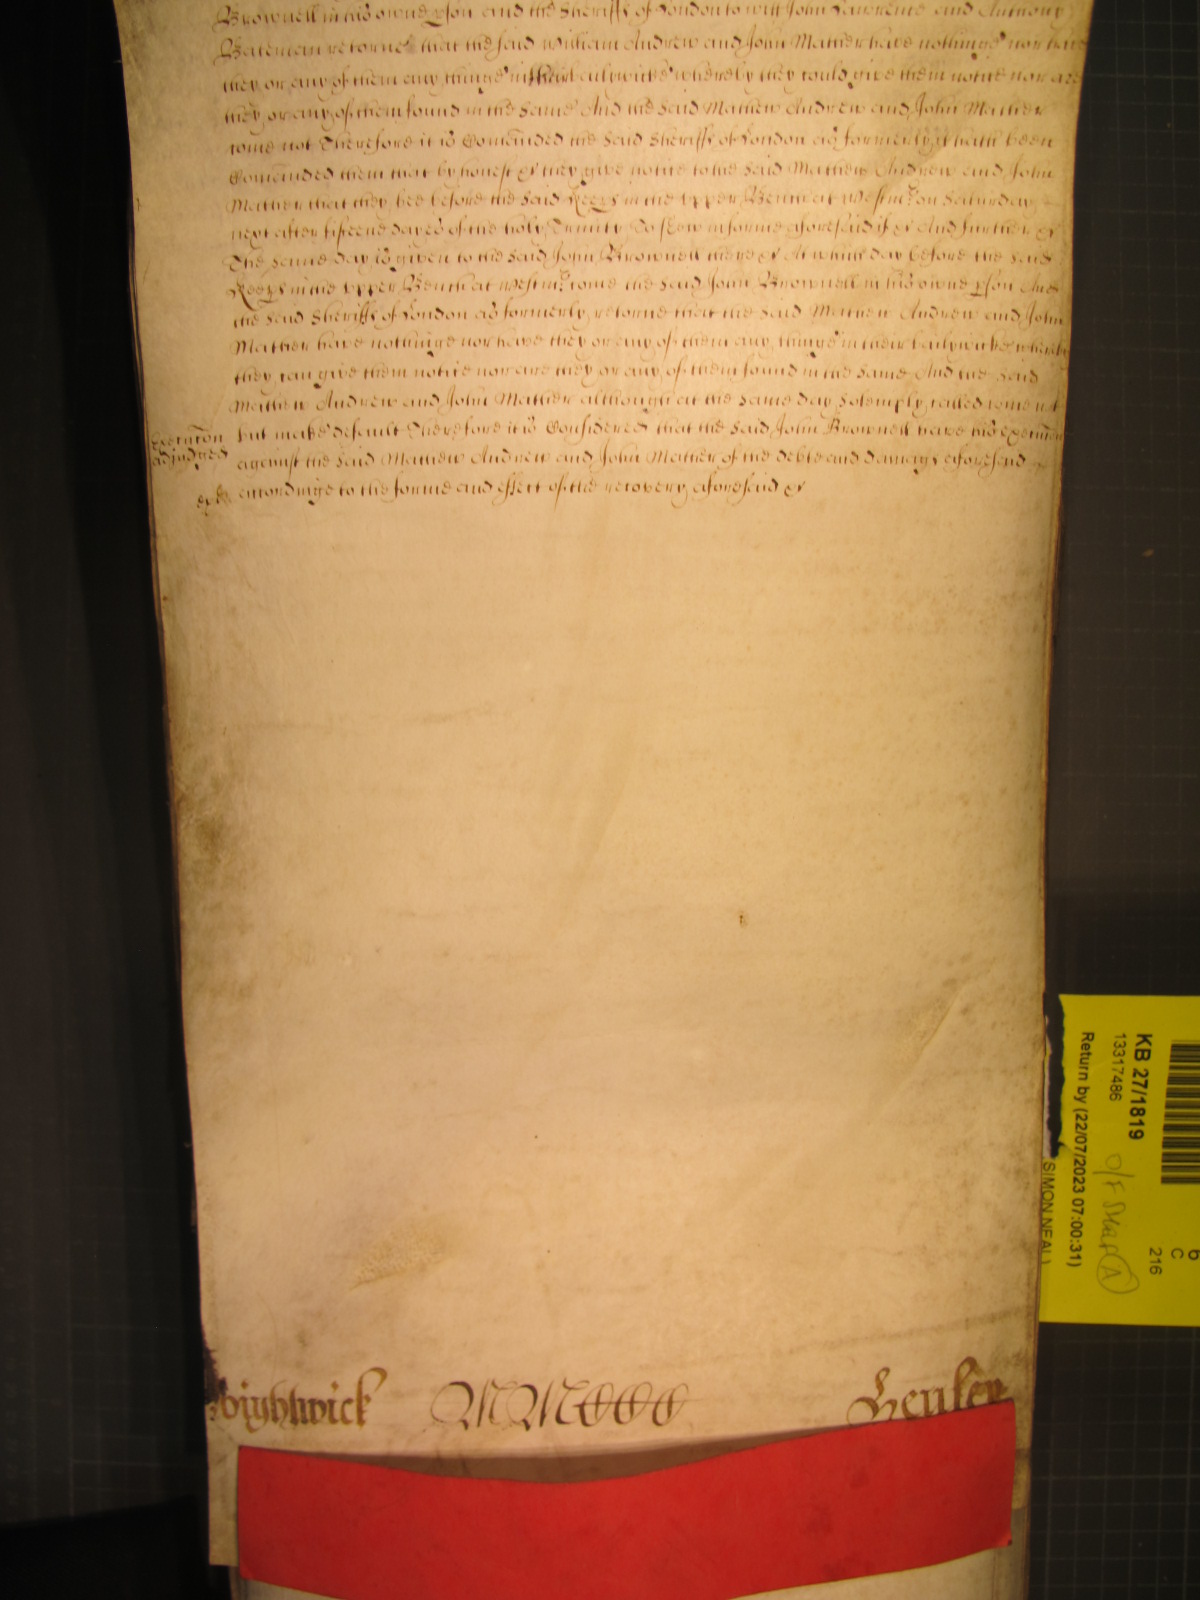 Brownell in his owne pson and the Sheriffs of London to witt John Lawrence and Anthony
Bateman retorne that the said William Andrew and John Mather have nothinge nor have
they or any of them any thinge in their bailywicke whereby they could give them notice nor are
they or any of them found in the same And the said Mathew Andrew and John Mather
come not Therefore it is Comanded the said Sheriffs of London as formerly it hath been
Comanded them that by honest &c they give notice to the said Mathew Andrew and John
Mather that they bee before the said Keeps in the upper Bench at Westmr on Saturday
next after fifteene dayes of the holy Trinity To shew informe aforesaid if &c And further &c
The same day is given to the said John Brownell there &c At which day before the said
Keeps in the upper Bench at Westmr come the said John Brownell in his owne pson And
the said Sheriffs of London as formerly retorne that the said Mathew Andrew and John
Mather have nothinge nor have they or any of them any thinge in their bailywicke whereby
they can give them notice nor are they or any of them found in the same And the said
Mathew Andrew and John Mather although at the same day solemply called come not
but make default Therefore it is Considered that the said John Brownell have his execucon
Execucon
adjudged
against the said Mathew Andrew and John Mather of the debte and damags aforesaid
accordinge to the forme and effect of the recovery aforesaid &c
Wightwick MMCCC Henley
KB 27/1819
13317486
Return by (22/07/2023 07:00:31)
SIMON NEAL)
216
C
6
O/F Shelf A